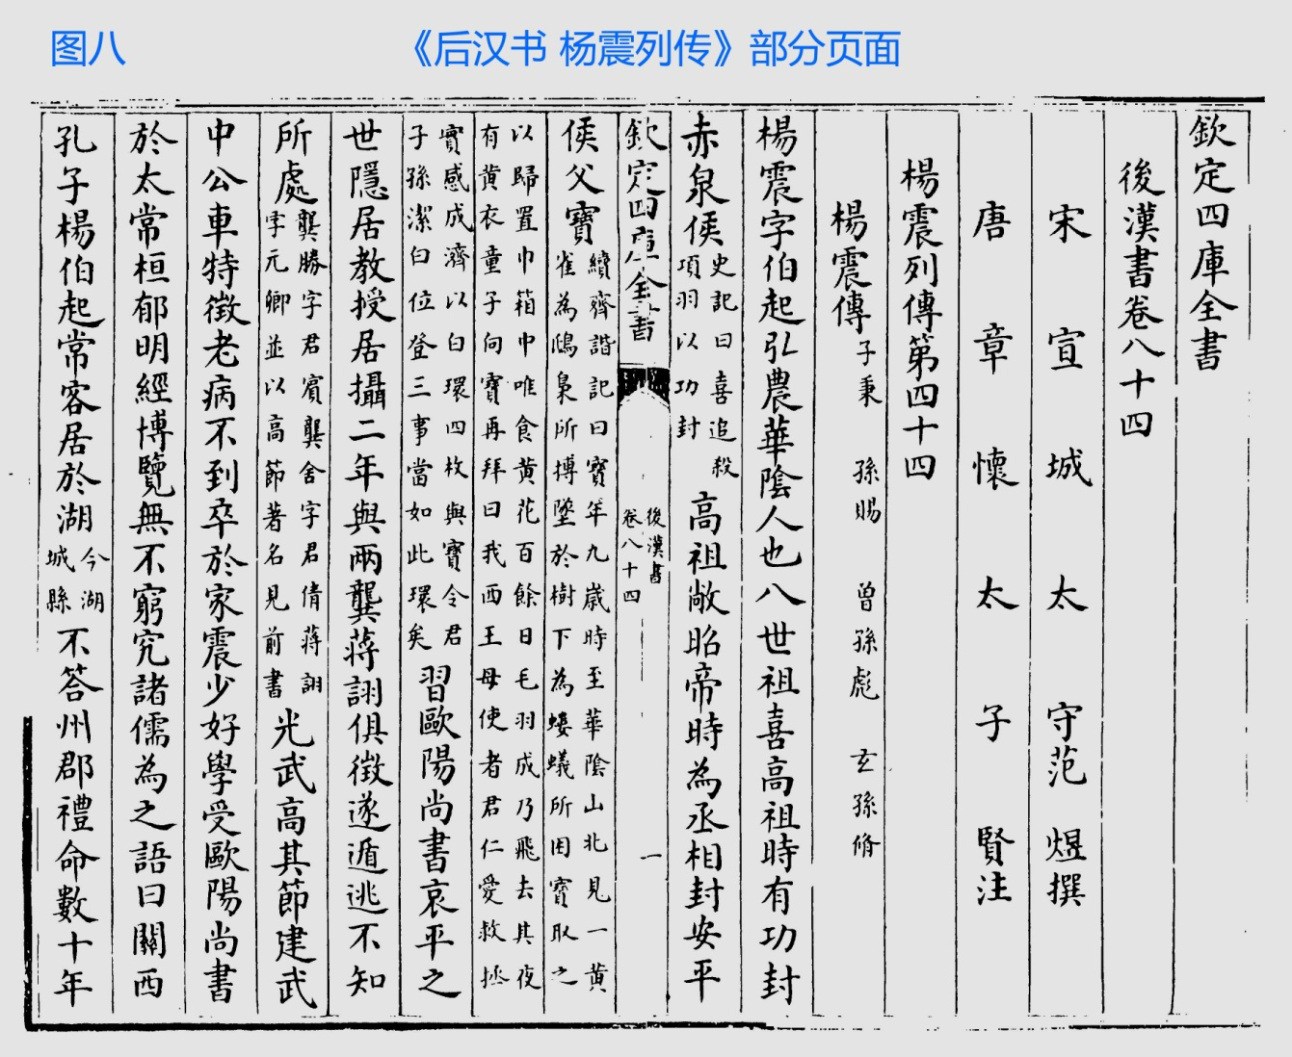 图八
《后汉书 杨震列传》部分页面
欽定四庫全書
後漢書卷八十四
宋宣城太守范煜撰
唐章懷太子賢注
楊震列傳第四十四
楊震傳 子秉 孫賜 曾孫彪 玄孫脩
楊震字伯起弘農華陰人也八世祖喜高祖時有功封
赤泉侯史記曰喜追殺項羽以功封高祖敞昭帝時為丞相封安平
欽定四庫全書
後漢書
卷八十四
一
侯父寶續齊諧記曰寶年九歲時至華陰山北見一黄
雀為鴟梟所搏墜於樹下為螻蟻所困寶取之
以歸置巾箱中唯食黄花百餘日毛羽成乃飛去其夜
有黄衣童子向寶再拜曰我西王母使者君仁愛救拯
實感成濟以白環四枚與寶令君
子孫潔白位登三事當如此環矣習歐陽尚書哀平之
世隱居教授居攝二年與兩龔蔣詡俱徵遂遁逃不知
所處龔勝字君賓龔舍字君倩蔣詡字元卿並以高節著名見前書光武高其節建武
中公車特徵老病不到卒於家震少好學受歐陽尚書
於太常桓郁明經博覽無不窮究諸儒為之語曰關西
孔子楊伯起常客居於湖今湖城縣不答州郡禮命數十年